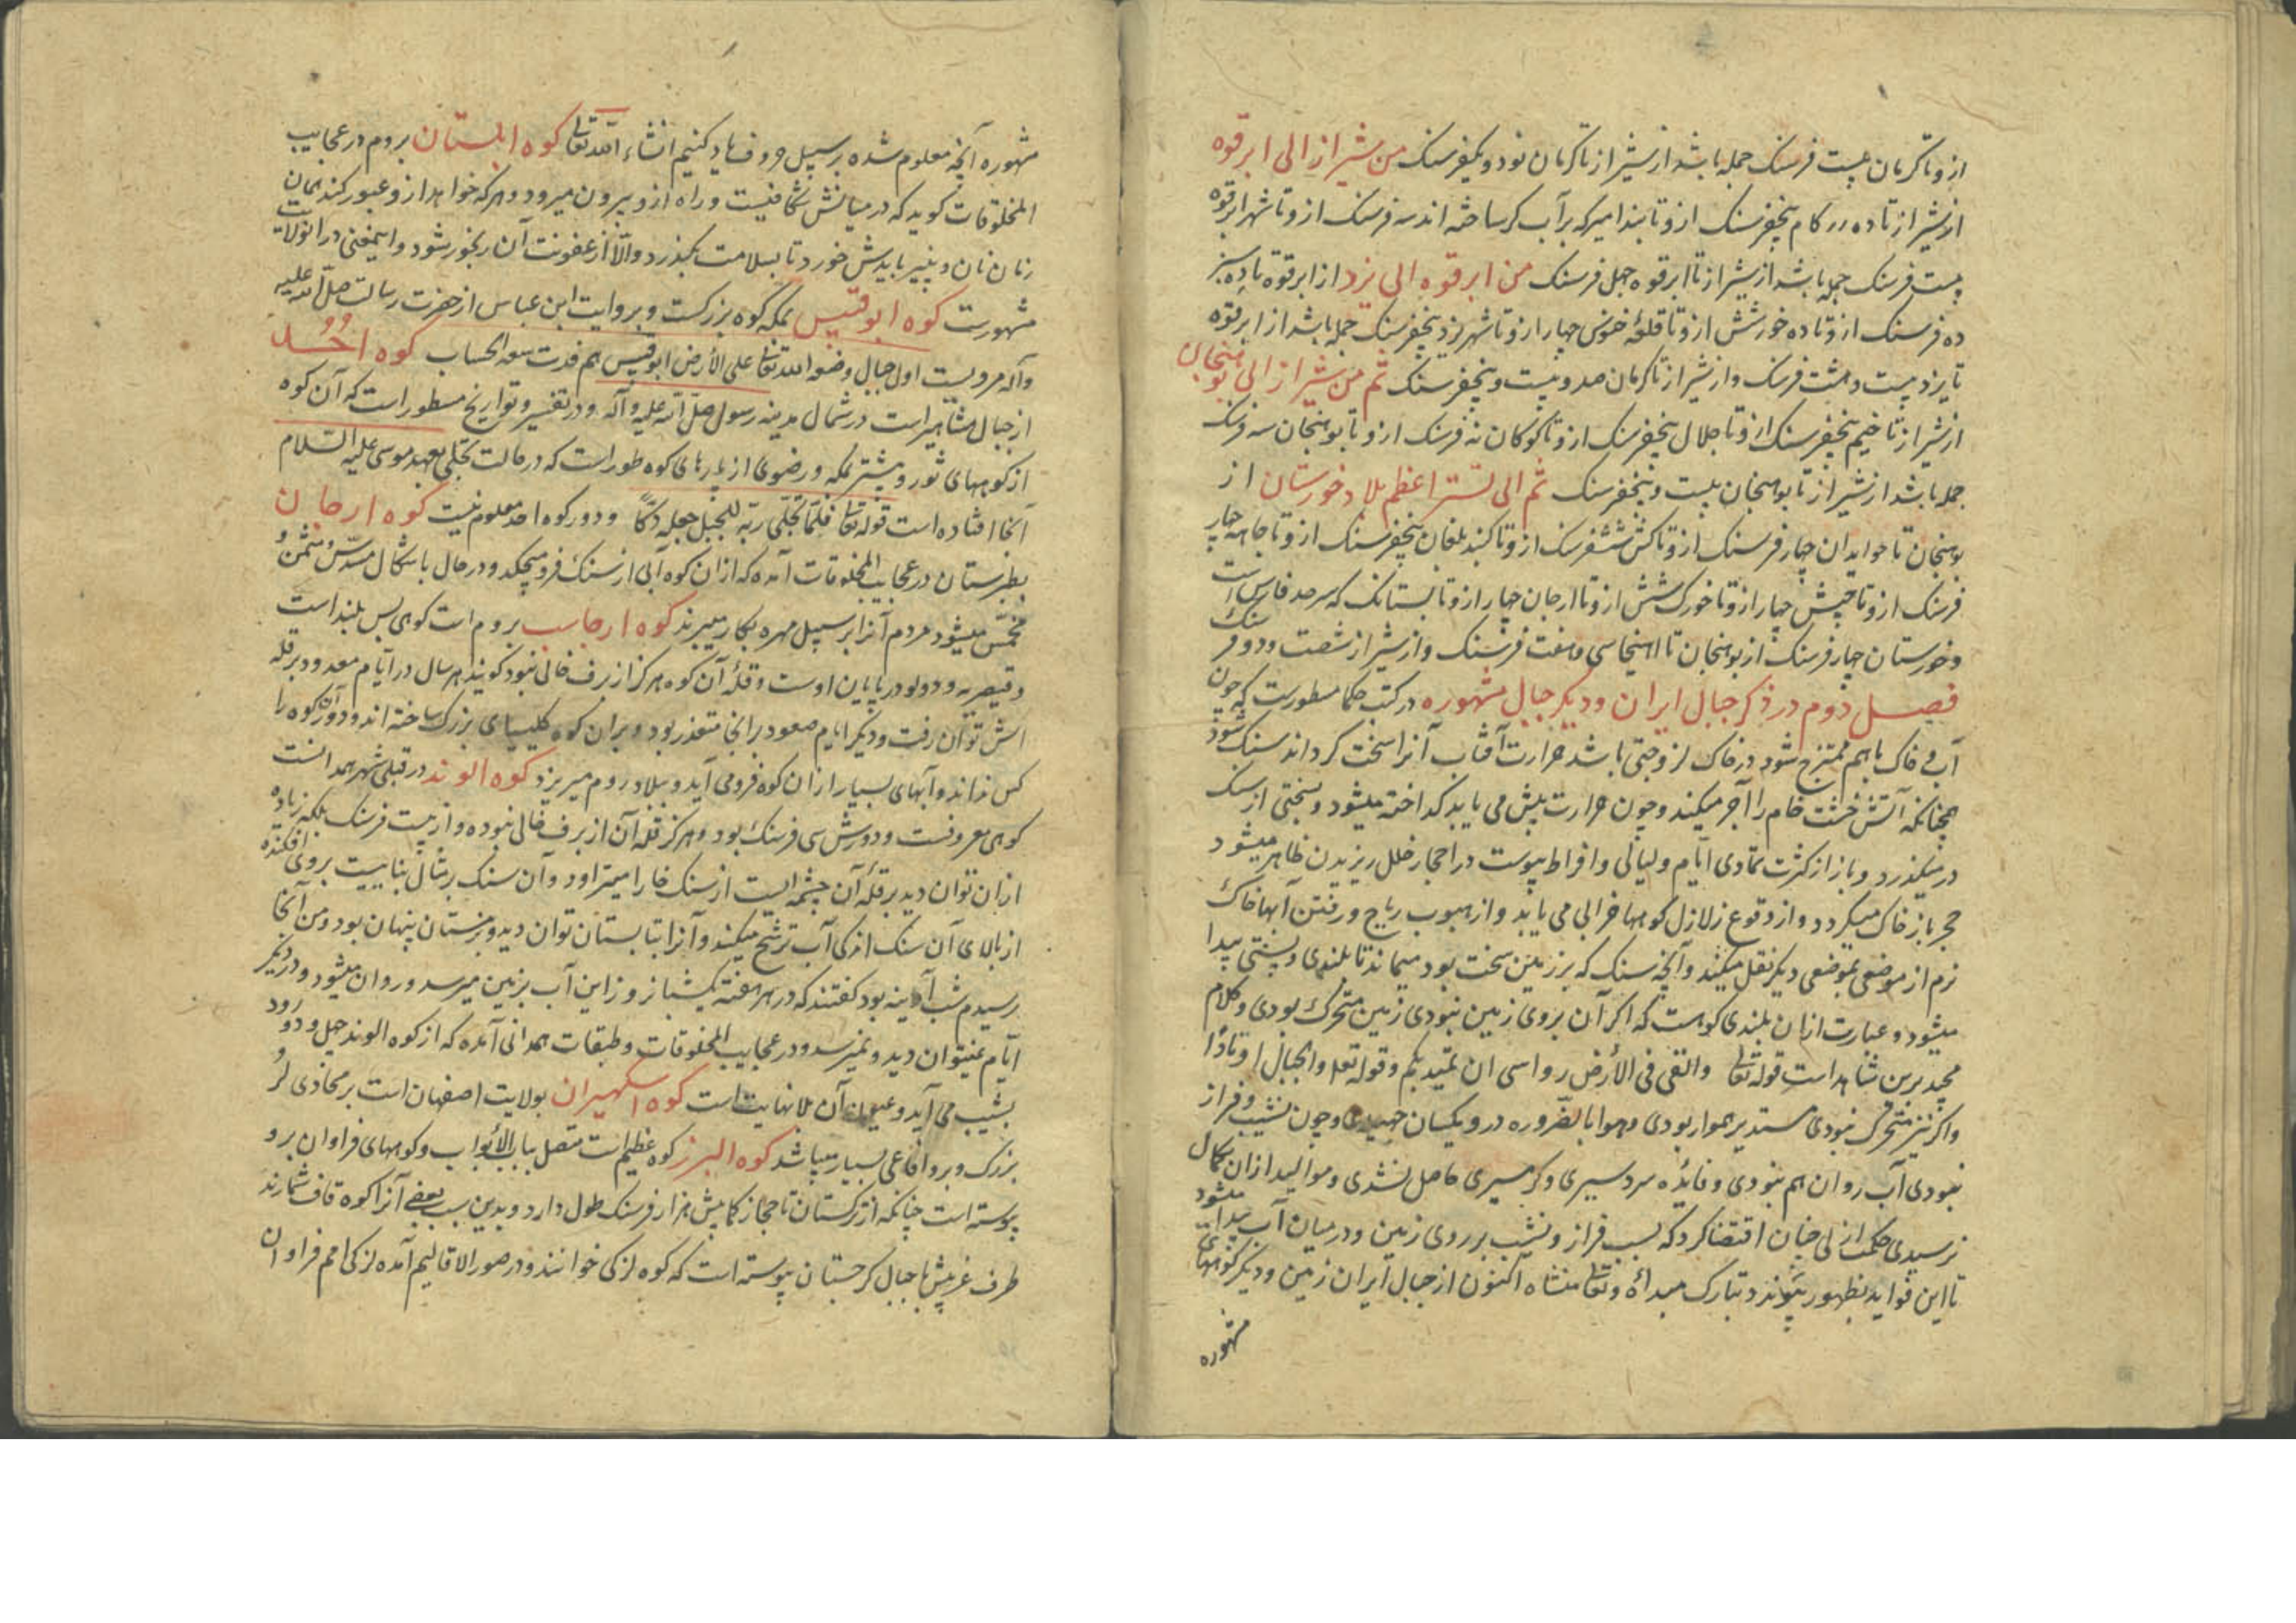 ازو تا کرمان بیست فرسنک جمله باشد از شیراز تا کرمان نود و یکفرسنک من شیراز الی ابرقوه
از شیراز تا ده کام پنجفرسنک ازو تا بند امیر که بر آب کر ساخته اند سه فرسنک ازو تا شهر ابرقوه
بیست فرسنک جمله باشد از شیراز تا ابرقوه چهل فرسنک من ابرقوه الی یزد از ابرقوه تا ده شیر
ده فرسنک ازو تا ده خورشش ازو تا قلعۀ مجوس چهار ازو تا شهر یزد پنجفرسنک جمله باشد از ابرقوه
تا یزد بیست و هشت فرسنک و از شیراز تا کرمان صد و بیست و پنجفرسنک ثم من شیراز الی بوسنجان
از شیراز تا پنجفرسنک ازو تا خلال پنجفرسنک ازو تا کوکان نه فرسنک ازو تا بوسنجان سه فرسنک
جمله باشد از شیراز تا بوسنجان بیست و پنجفرسنک ثم الی تستر اعظم بلاد خورستان از
بوسنجان تا خوابدان چهار فرسنک ازو تا کش ششفرسنک ازو تا کنبد ملغان پنجفرسنک ازو تا چهار
فرسنک ازو تا چهار ازو تا خورک شش ازو تا ارجان چهار ازو تا بستانک که سرحد فارس است
و خورستان چهار فرسنک از بوسنجان تا اینجا سی و هفت فرسنک و از شیراز شصت و دو فرسنک
فصل دوم در ذکر جبال ایران و دیکر جبال مشهوره در کتب حکما مسطورست که چون
آب و خاک با هم ممتزج شود و در خاک لزوجتی باشد حرارت آفتاب آنرا سخت کرداند سنک شود
همچنانکه آتش خشت خام را آجر میکند و چون حرارت بیش می یابد کداخته میشود و بسختی از سنک
در میکذرد و باز از کثرت تمادی ایام و لیالی و افراط یبوست در احجار خلل ریزیدن ظاهر میشود
حجر باز خاک میکردد و از وقوع زلازل کوهها خرابی می یابد و از هبوب ریاح و رفتن آبها خاک
نرم از موضعی بموضعی دیکر نقل میکند و آنچه سنک که بر زمین سخت بود میماند تا بلندی و پستی پیدا
میشود و عبارت ازان بلندی کوهست که اکر آن بروی زمین نبودی زمین متحرک بودی و کلام
مجید برین شاهد است قوله تعالی والقی فی الأرض رواسی ان تمید بکم و قوله تعالی والجبال اوتادا
و اکر نیز متحرک نبودی مستدیر هموار بودی و هوا بالضروره درو یکسان جهیدی و چون نشیب و فراز
نبودی آب روان هم نبودی و فائده سردسیری و کرمسیری حاصل نشدی و موالید ازان بکمال
نرسیدی حکمت ازلی چنان اقتضا کرد که بسبب فراز و نشیب بر روی زمین و در میان آب پیدا میشود
تا این فواید بظهور پیوندد تبارک مبدأه و تعالی منشاه اکنون از جبال ایران زمین و دیکر کوههای
مشهوره
مشهوره آنچه معلوم شده بر سبیل حروف یاد کنیم انشاء الله تعالی کوه ابلستان بروم در عجایب
المخلوقات کوید که در میانش شکافیست و راه ازو بیرون میرود و هر که خواهد ازو عبور کند بمان
زنان نان و پنیر بایدش خورد تا بسلامت بکذرد والا از عفونت آن رنجور شود و این معنی در آن ولایت
مشهورست کوه ابوقبیس بمکه کوه بزرکست و بروایت ابن عباس از حضرت رسالت صلی الله علیه
وآله مرویست اول جبل وضعه الله تعالی علی الأرض ابوقبیس کوه احد
از جبال مشاهیر است در شمال مدینه رسول صلی الله علیه و آله و در تفسیر و تواریخ مسطور است که آن کوه
از کوههای ثور و بمکه و رضوی از پارهای کوه طور است که در حالت تجلی بعهد موسی علیه السلام
آنجا افتاده است قوله تعالی فلما تجلی ربه للجبل جعله دکا و دور کوه احد معلوم نیست کوه ارجان
بطبرستان در عجایب المخلوقات آمده که ازان کوه آبی از سنک فرو میچکد و در حال باشکال مسدس و مثمن و
مخمس میشود مردم آنرا بر سبیل مهره بکار میبرند کوه ارجاسب بروم است کوهی بس بلند است
و قیصریه و دولو در پایان اوست و قلۀ آن کوه هرکز از برف خالی نبود کویند هر سال در ایام معدود بر قله
اش توان رفت و دیکر ایام صعود بر انجا متعذر بود و بران کوه کلیسیای بزرک ساخته اند و دور آن کوه را
کس نداند و آبهای بسیار ازان کوه فرو می آید و ببلاد روم میریزد کوه الوند در قبلی شهر همدانست
کوهی معروفست و دورش سی فرسنک بود و هرکز قلۀ آن از برف خالی نبوده و از بیست فرسنک بلکه زیاده
ازان توان دید بر قلۀ آن چشمه ایست از سنک خارا میتراود و آن سنک بر مثال بنائیست بروی افکنده
از بالای آن سنک اندکی آب ترشح میکند و آنرا بتابستان توان دید و بزمستان پنهان بود و من آنجا
رسیدم شب آدینه بود کفتند که در هر هفته یک شبانروز این آب بزمین میرسد و روان میشود و در دیکر
ایام نمیتوان دید و نمیرسد و در عجایب المخلوقات و طبقات همدانی آمده که از کوه الوند چهل و دو رود
بشیب می آید و عیون آن بلا نهایت است کوه اسکهیران بولایت اصفهان است بر محاذی لر و
بزرک و برو افاعی بسیار میباشد کوه البرز کوه عظیم است متصل بباب الأبواب و کوههای فراوان برو
پیوسته است چنانکه از ترکستان تا حجاز کمابیش هزار فرسنک طول دارد و بدین سبب بعضی آنرا کوه قاف شمارند
طرف غربیش با جبال کرجستان پیوسته است که کوه لزکی خوانند و در صور الاقالیم آمده لزکی امم فراوان